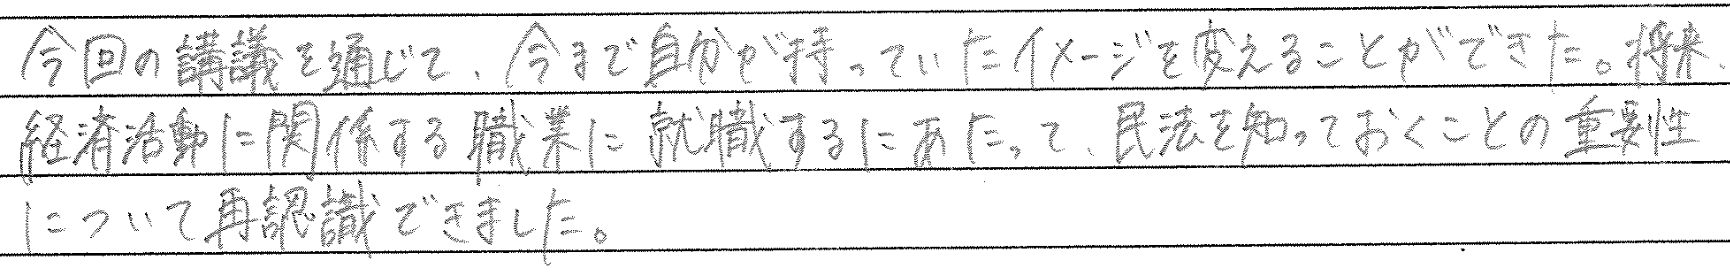 今回の講議を通じて、今まで自分が持っていたイメージを変えることができた。将来、
経済活動に関係する職業に就職するにあたって、民法を知っておくことの重要性
について再認識できました。